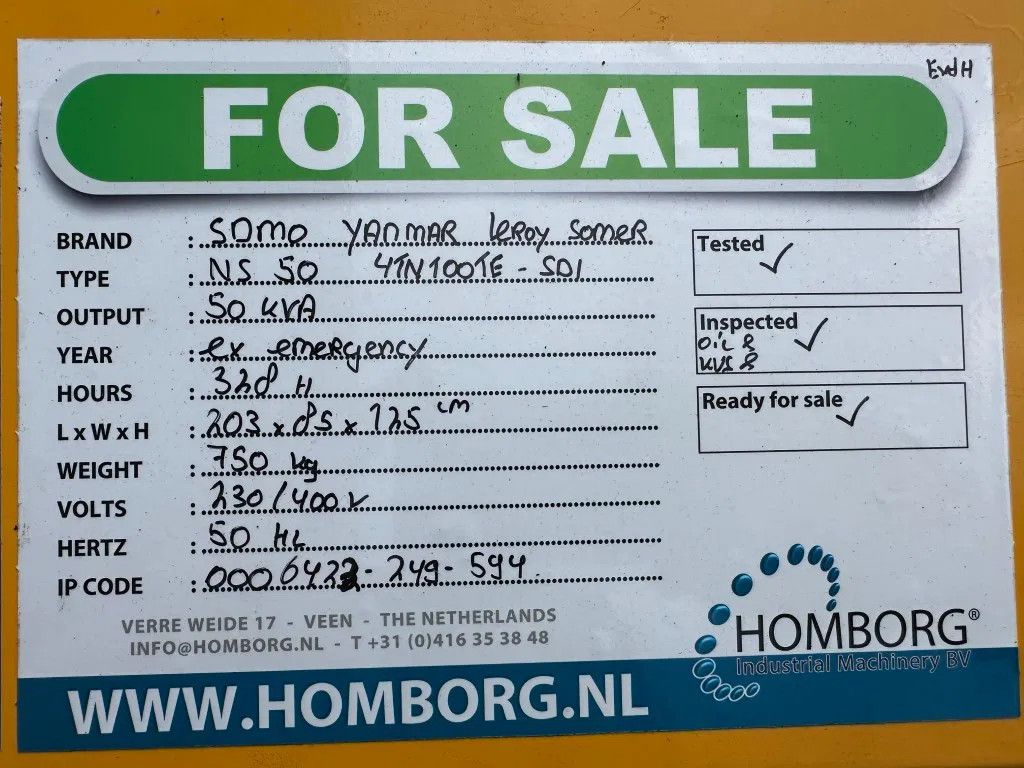 EvdH
FOR SALE
BRAND : SDMO YANMAR LEROY SOMER
TYPE : NS 50 4TN100TE - SD1
OUTPUT : 50 KVA
YEAR : ex emergency
HOURS : 328 H
L x W x H : 203 x 85 x 125 cm
WEIGHT : 750 kg
VOLTS : 230/400V
HERTZ : 50 Hz
IP CODE : 0006422-249-594
Tested ✓
Inspected ✓
OiL &
Ready for sale ✓
VERRE WEIDE 17 - VEEN - THE NETHERLANDS
INFO@HOMBORG.NL - T +31 (0)416 35 38 48
HOMBORG®
Industrial Machinery BV
WWW.HOMBORG.NL